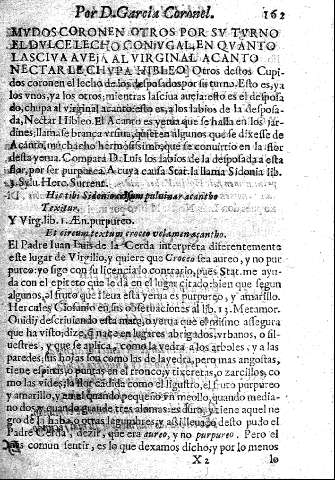 Por D. Garcia Coronel. 162
MVDOS CORONEN OTROS POR SV TVRNO
EL DVLCE LECHO CONIVGAL, EN QVANTO
LASCIVA AVEJA AL VIRGINAL ACANTO
NECTAR LE CHVPA HIBLEO] Otros destos Cupi-
dos coronen el lecho de los desposados por su turno. Esto es, ya
los vnos, ya los otros; mientras lasciua aueja: esto es el desposa-
do, chupa al virginal acanto: esto es, a los labios de la desposa-
da, Nectar Hibleo. El Acanto es yerua que se halla en los jar-
dines; llamase branca vrsina, quieren algunos que se dixesse de
Acanto, muchacho hermosissimo, que se conuirtio en la flor
desta yerua. Compara D. Luis los labios de la desposada a esta
flor, por ser purpurea. A cuya causa Stat. la llama Sidonia lib.
3. Sylu. Herc. Surrent.
Hic tibi Sidonio celsum puluinar acantho
Texitur.
Y Virg. lib. 1. Æn. purpureo.
Et circumtextum croceo velamen acantho.
El Padre Iuan Luis de la Cerda interpreta diferentemente
este lugar de Virgilio, y quiere que Croceo sea aureo, y no pur-
pureo: yo sigo con su licencia lo contrario, pues Stat. me ayu-
da con el epiteto que le dà en el lugar citado: bien que segun
algunos, el fruto que lleua esta yerua es purpureo, y amarillo.
Hercules Ciofanio en sus obseruationes al lib. 13. Metamor.
Ouidij descriuiendo esta mata, o yerua que el mismo assegura
que ha visto, dize, q nace en lugares abrigados, vrbanos, o sil-
uestres, y que se aplica, como la yedra a los arboles, y a las
paredes, sus hojas son como las de la yedra, pero mas angostas,
tiene espinas, o puntas en el tronco, y tixeretas, o zarcillos, co
mo las vides; la flor cãdida como el ligustro, el fruto purpureo
y amarillo, y en el quando pequeño vn meollo, quando media-
no dos, y quando grande tres, al tomar es duro, y tiene aquel ne-
gro de la haba, o otras legumbres, y assi lleuado desto pudo el
Padre Cerda dezir, que era aureo, y no purpureo. Pero el
mas comun sentir, es lo que dexamos dicho, y por lo menos
X 2 lo